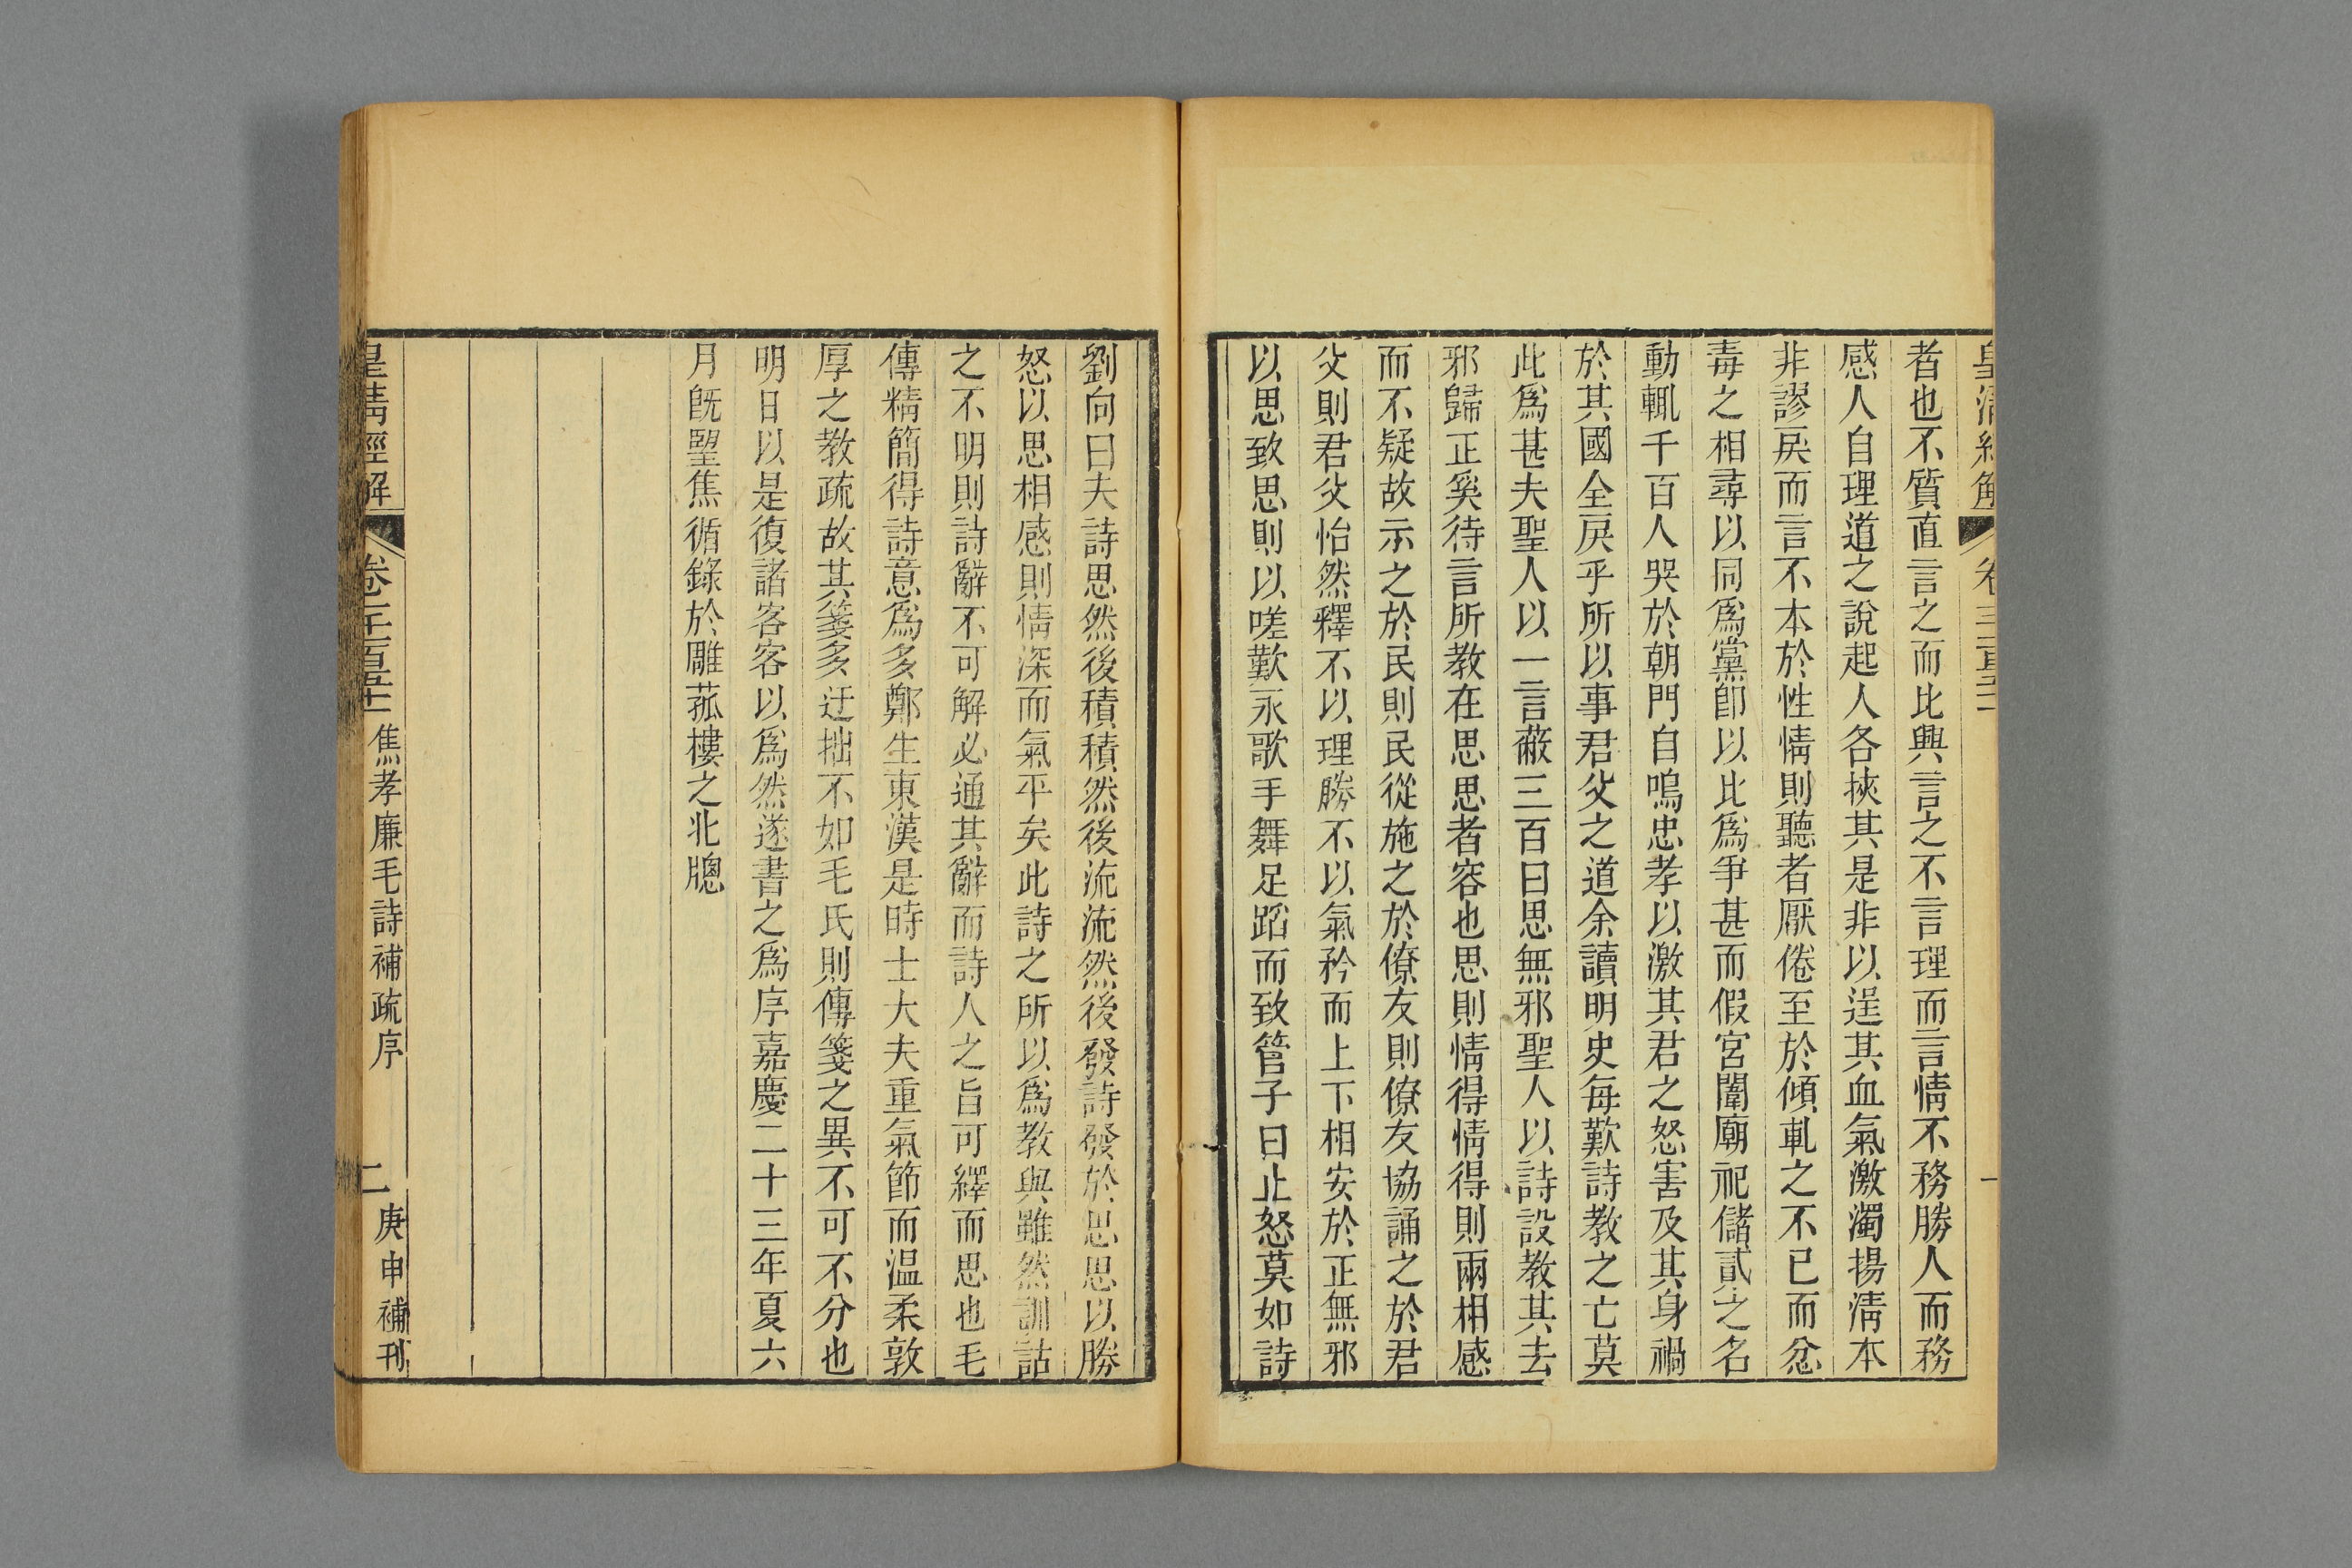 者也不質直言之而比興言之不言理而言情不務勝人而務
感人自理道之說起人各挾其是非以逞其血氣激濁揚淸本
非謬戾而言不本於性情則聽者厭倦至於傾軋之不已而忿
毒之相尋以同爲黨卽以比爲爭甚而假宮闈廟祀儲貳之名
動輒千百人哭於朝門自鳴忠孝以激其君之怒害及其身禍
於其國全戾乎所以事君父之道余讀明史每歎詩教之亡莫
此爲甚夫聖人以一言蔽三百曰思無邪聖人以詩設教其去
邪歸正奚待言所教在思思者容也思則情得情得則兩相感
而不疑故示之於民則民從施之於僚友則僚友協誦之於君
父則君父怡然釋不以理勝不以氣矜而上下相安於正無邪
以思致思則以嗟歎永歌手舞足蹈而致管子曰止怒莫如詩
劉向曰夫詩思然後積積然後流流然後發詩發於思思以勝
怒以思相感則情深而氣平矣此詩之所以爲教與雖然訓詁
之不明則詩辭不可解必通其辭而詩人之旨可繹而思也毛
傳精簡得詩意爲多鄭生東漢是時士大夫重氣節而温柔敦
厚之教疏故其箋多迂拙不如毛氏則傳箋之異不可不分也
明日以是復諸客客以爲然遂書之爲序嘉慶二十三年夏六
月旣朢焦循錄於雕菰樓之北牕
皇淸經解
焦孝廉毛詩補疏序
二
庚申補刊